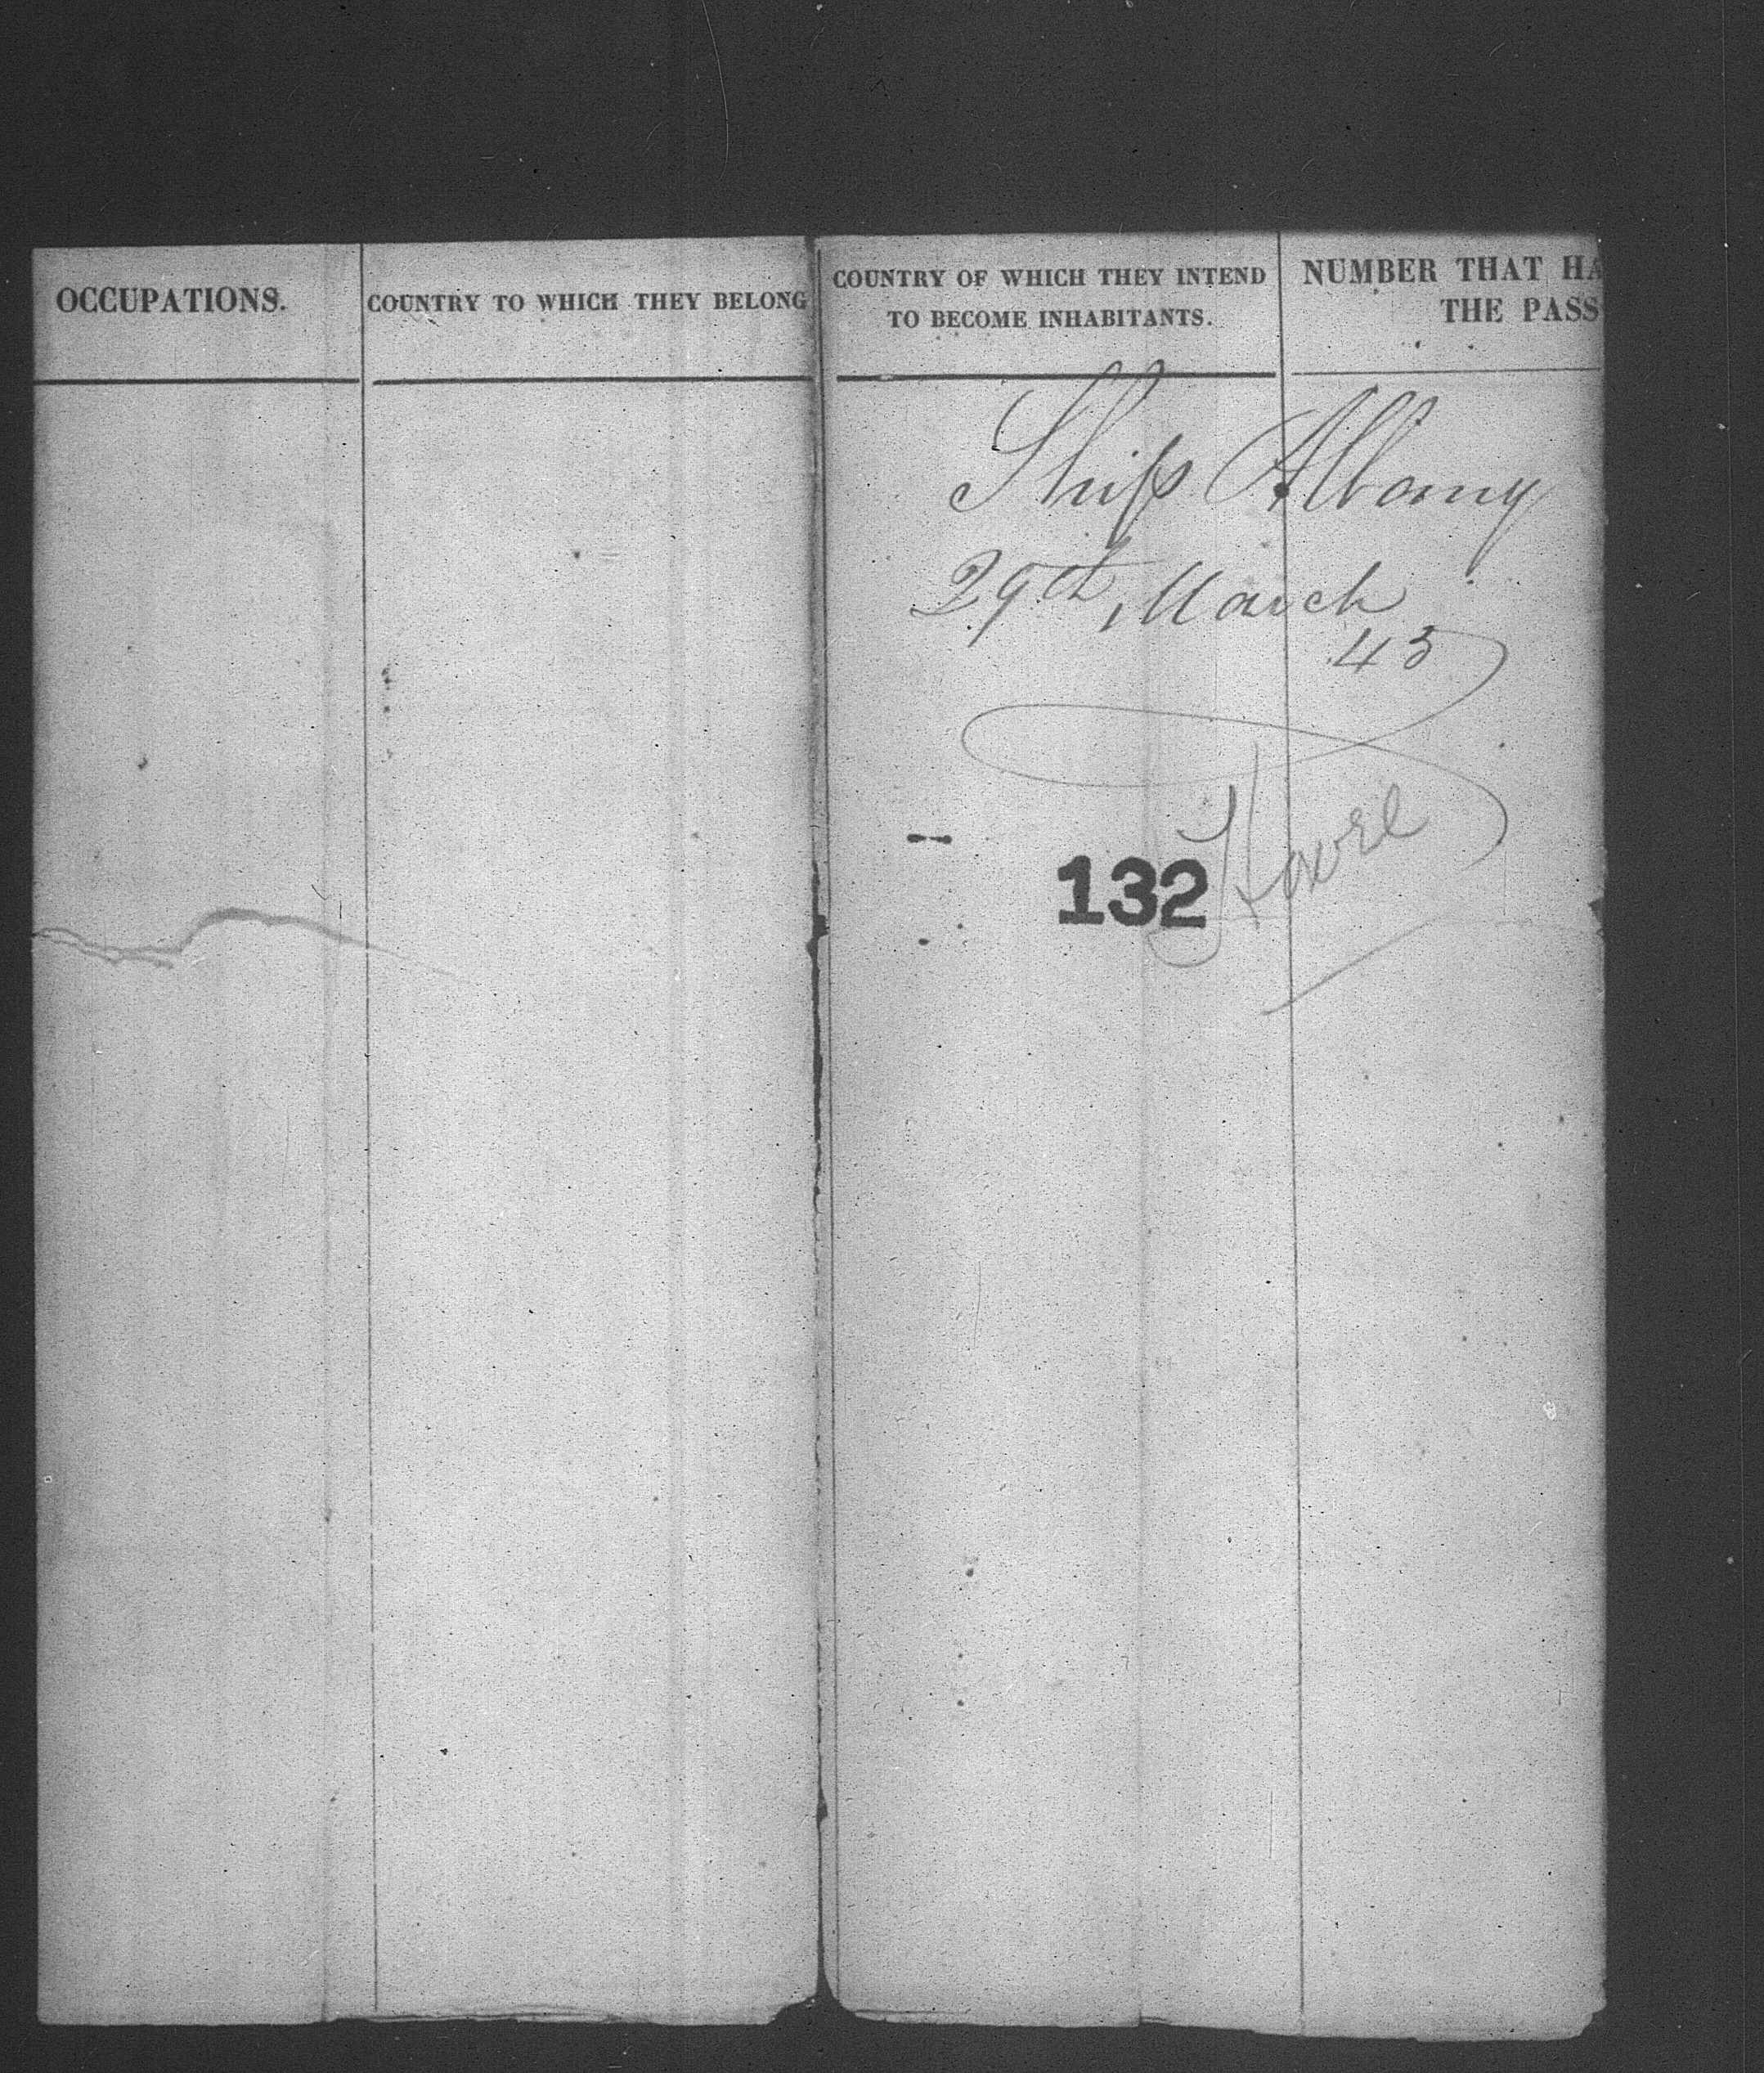 OCCUPATIONS.
COUNTRY TO WHICH THEY BELONG
COUNTRY OF WHICH THEY INTEND
TO BECOME INHABITANTS.
NUMBER THAT HA
THE PASS
Ship Albany
29th March
43
132
Havre